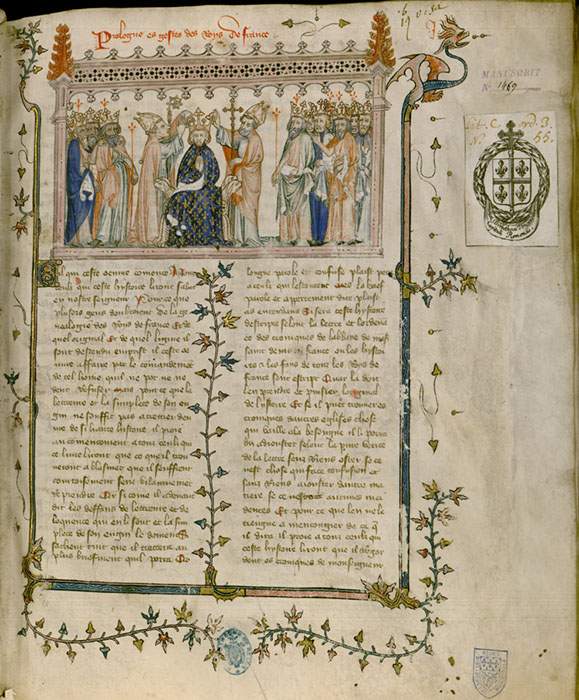 Prologue es gestes des Roys de france
MANUSCRIT
Nº 1469
Lit. C. ord. 3.
Nº 55.
Cil qui ceste oeuvre comence A touz
ceulz qui ceste hystoire liront salus
en nostre seigneur Pour ce que
pluseurs gens doubtoient de la ge
nealogie des Roys de france Et de
quel original Et de quel ligniee il
sont descendu emprist il ceste oe
uvre affaire par le comandement
de tel home que il ne pot ne ne
deut refuser Mais pour ce que la
lectreure et la simplece de son en
gin ne souffit pas a traictier deu
vre de si haute hystoire il prie
au comencement a touz ceulz qui
ce livre liront que ce que il trou
veront a blasmer que il seuffrent
sanz vilainnement
de reprendre Car si come il a devant
dit les deffaus de lectreure et de
loquence qui en li sont et la sim
plece de son engin le
sachent tuit que il traictera au
plus briefment quil porra Car
longue parole et confuse plaist petit
a ceulz qui lescoutent Mes la brief
parole et apertement dite plaist
as entendans Et sera ceste hystoire
descripte selonc la lectre et lordenan
ce des croniques de labbaye de mons
saint denis en france ou les hystoi
res et les faiz de touz les Roys de
france sont escript Car la doit
len prendre et puisier loriginal
de lystoire Et se il puet trouver es
croniques dautres eglises chose
qui vaille a la besoigne il i porra
bien adiouster selonc la pure verite
de la lectre sanz riens oster se ce
nest chose qui face confusion et
sanz riens adiouster dautre ma
tiere se ce ne sont aucunes inci
dences Et pour ce que len ne le
tiengne a mencongier de ce que
il dira il prie a touz ceulz qui
ceste hystoire liront que il regar
dent es croniques de monseigneur